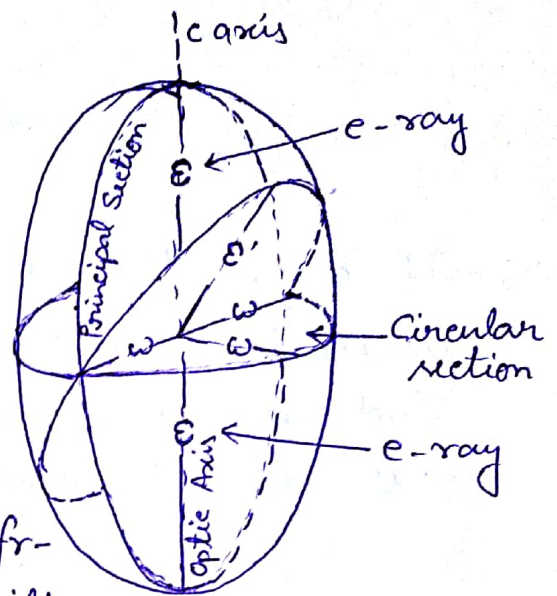 c axis
e-ray
Principal Section
ω
ω
ω
ω
Circular
section
e-ray
Optic Axis
fr-